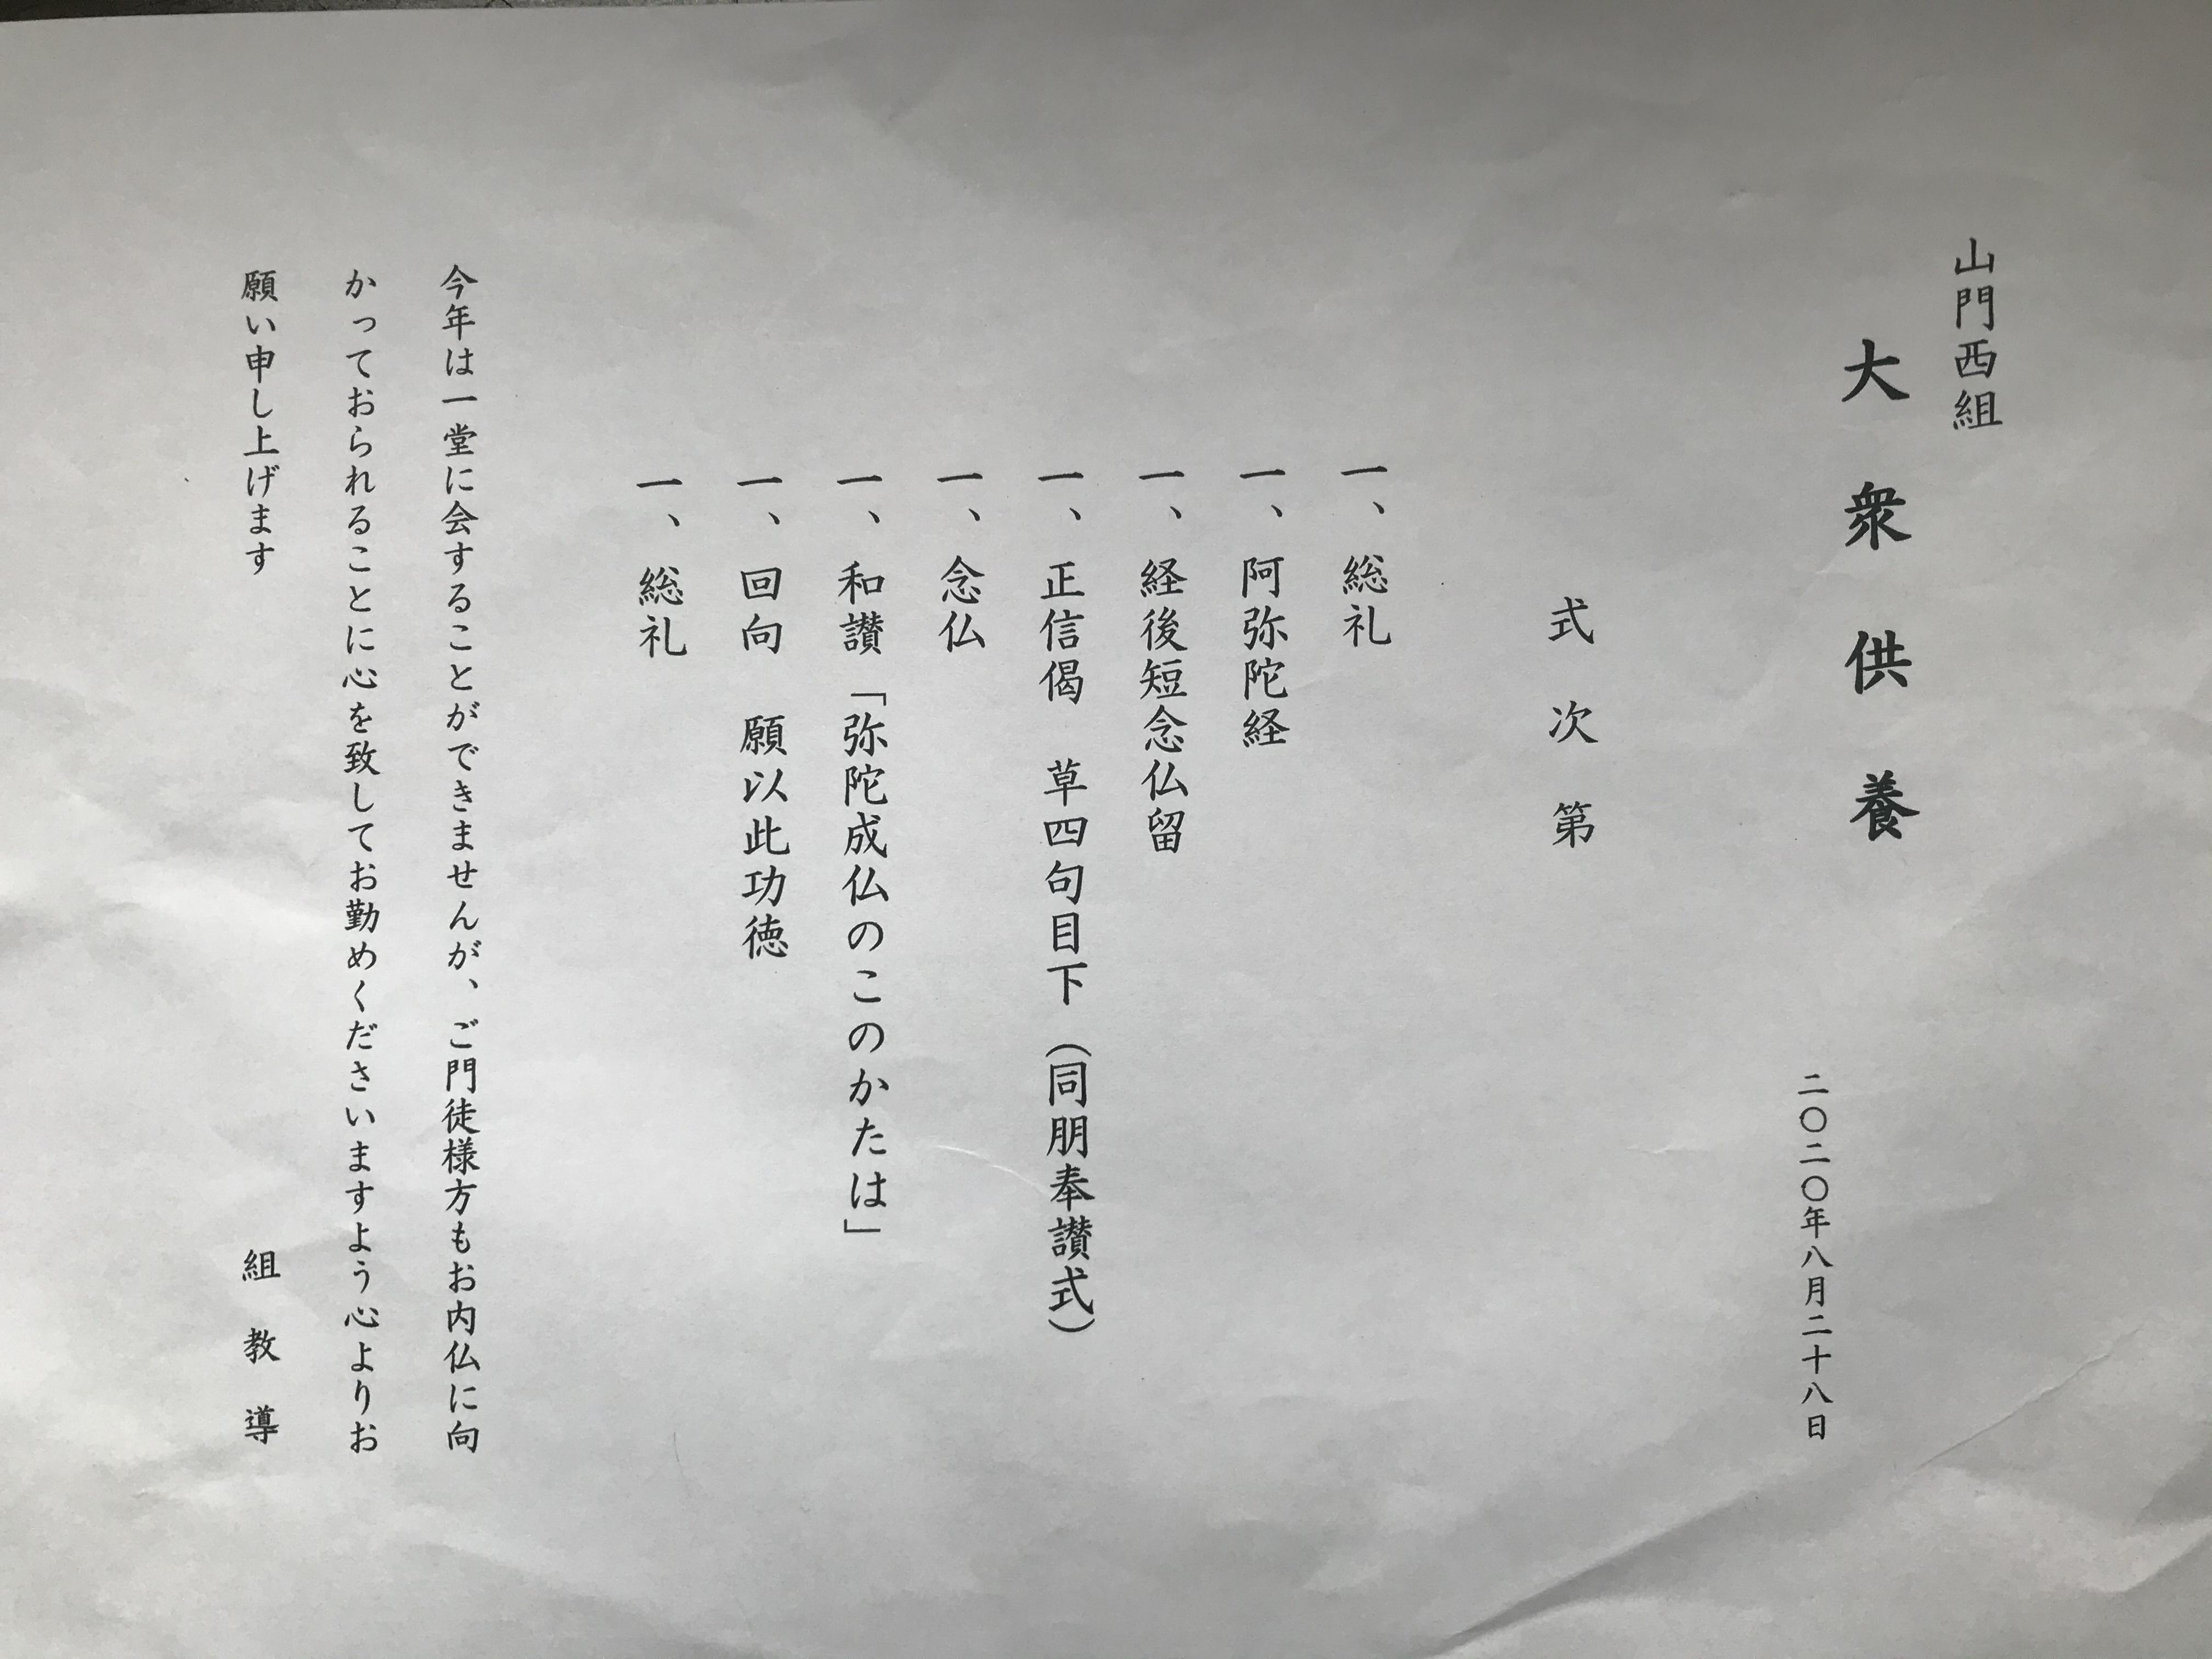 山門西組
大衆供養
二〇二〇年八月二十八日
式次第
一、総礼
一、阿弥陀経
一、経後短念仏留
一、正信偈　草四句目下（同朋奉讃式）
一、念仏
一、和讃「弥陀成仏のこのかたは」
一、回向　願以此功徳
一、総礼
今年は一堂に会することができませんが、ご門徒様方もお内仏に向
かっておられることに心を致してお勤めくださいますよう心よりお
願い申し上げます
組教導